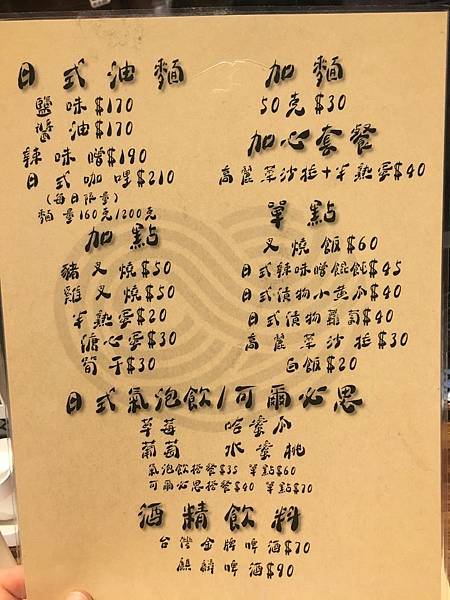 日式油麵
鹽味$170
醬油$170
辣味噌$190
日式咖哩$210
(每日限量)
麵量160克/200克
加點
豬叉燒$50
雞叉燒$50
半熟蛋$20
溏心蛋$30
筍干$30
加麵
50克$30
加心套餐
高麗菜沙拉+半熟蛋$40
單點
叉燒飯$60
日式辣味噌餛飩$45
日式漬物小黃瓜$40
日式漬物蘿蔔$40
高麗菜沙拉$30
白飯$20
日式氣泡飲/可爾必思
草莓 哈蜜瓜
葡萄 水蜜桃
氣泡飲搭餐$35 單點$60
可爾必思搭餐$40 單點$70
酒精飲料
台灣金牌啤酒$70
麒麟啤酒$90